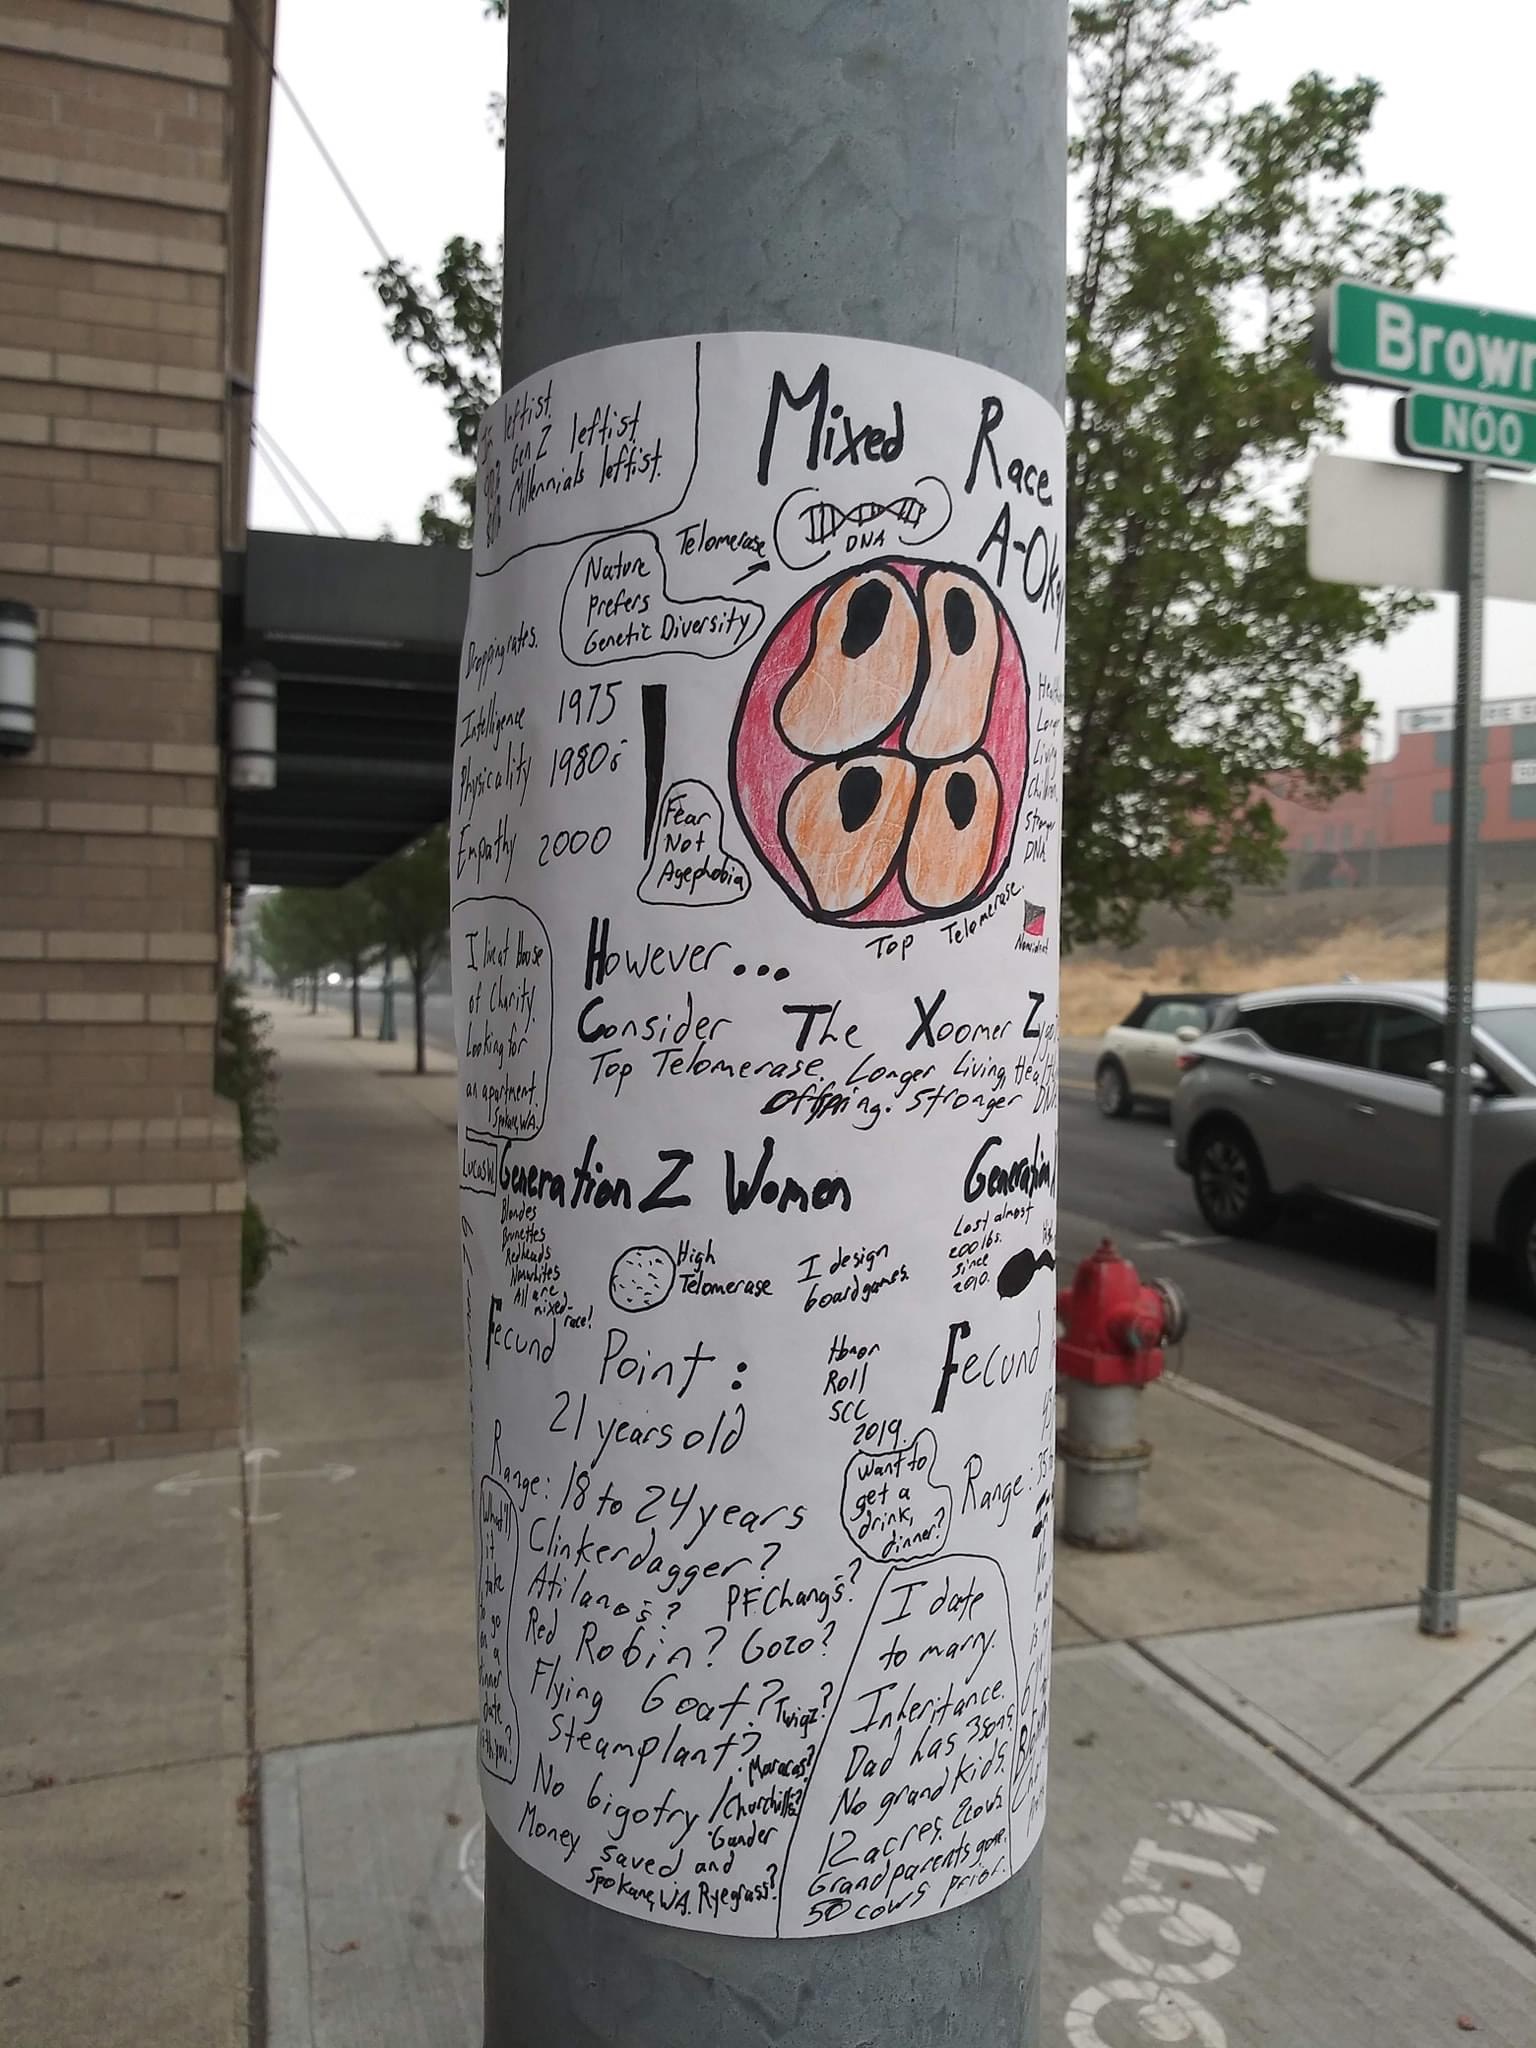 leftist.
Gen Z leftist
Millennials leftist.
Mixed Race
A-Okay
Telomerase
DNA
Nature
prefers
Genetic Diversity
Dropping rates.
Intelligence 1975
Physicality 1980s
Empathy 2000
Fear
Not
Agephobia
Longer
Living
Children.
Stronger
DNA
Top Telomerase.
I live at House
of Charity.
Looking for
an apartment.
Spokane, WA.
However...
Consider The Xoomer
Top Telomerase. Longer Living, Healthy
Offspring. Stronger
Lucas W.
Generation Z Women
Blondes
Brunettes
Redheads
Nonwhites
All are
mixed-
race!
High
Telomerase
I design
boardgames.
Generation
Lost almost
200 lbs.
since
2010.
Fecund Point:
21 years old
Range: 18 to 24 years
Honor
Roll
SCC
2019.
Want to
get a
drink,
dinner?
Fecund
Range: 35
What'll
it
take
to go
on a
dinner
date
with you?
Clinkerdagger?
Atilano's? P.F. Chang's?
Red Robin? Gozo?
Flying Goat? Twigz?
Steamplant? Maracas?
No bigotry / Churchills?
Gander
Money saved and
Spokane, WA. Ryegrass?
I date
to marry.
Inheritance.
Dad has 3 sons.
No grandkids.
12 acres. 2 cows.
Grandparents gone.
50 cows prior.
Brown
NOO